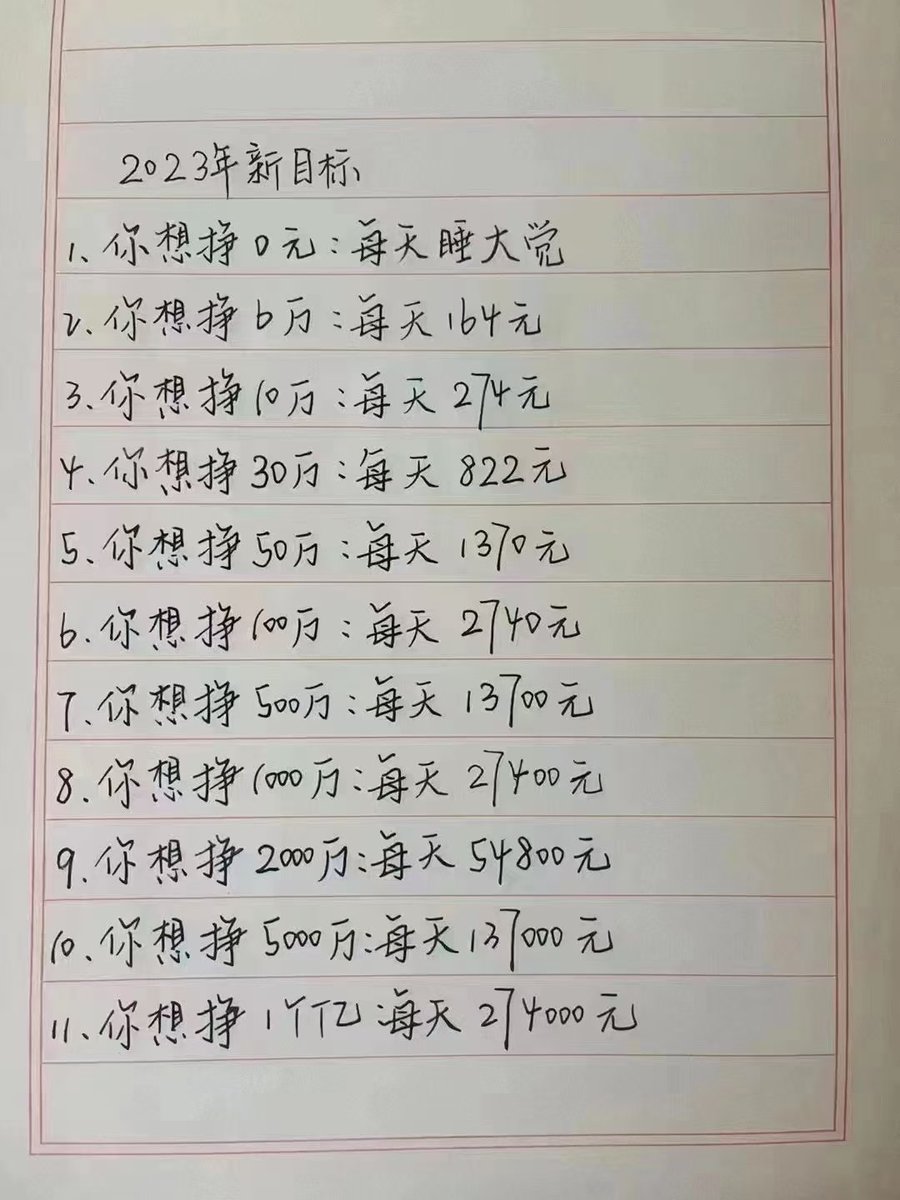 2023年新目标
1、你想挣0元:每天睡大觉
2、你想挣6万:每天164元
3、你想挣10万:每天274元
4、你想挣30万:每天822元
5、你想挣50万:每天1370元
6、你想挣100万:每天2740元
7、你想挣500万:每天13700元
8、你想挣1000万:每天27400元
9、你想挣2000万:每天54800元
10、你想挣5000万:每天137000元
11、你想挣1个亿:每天274000元